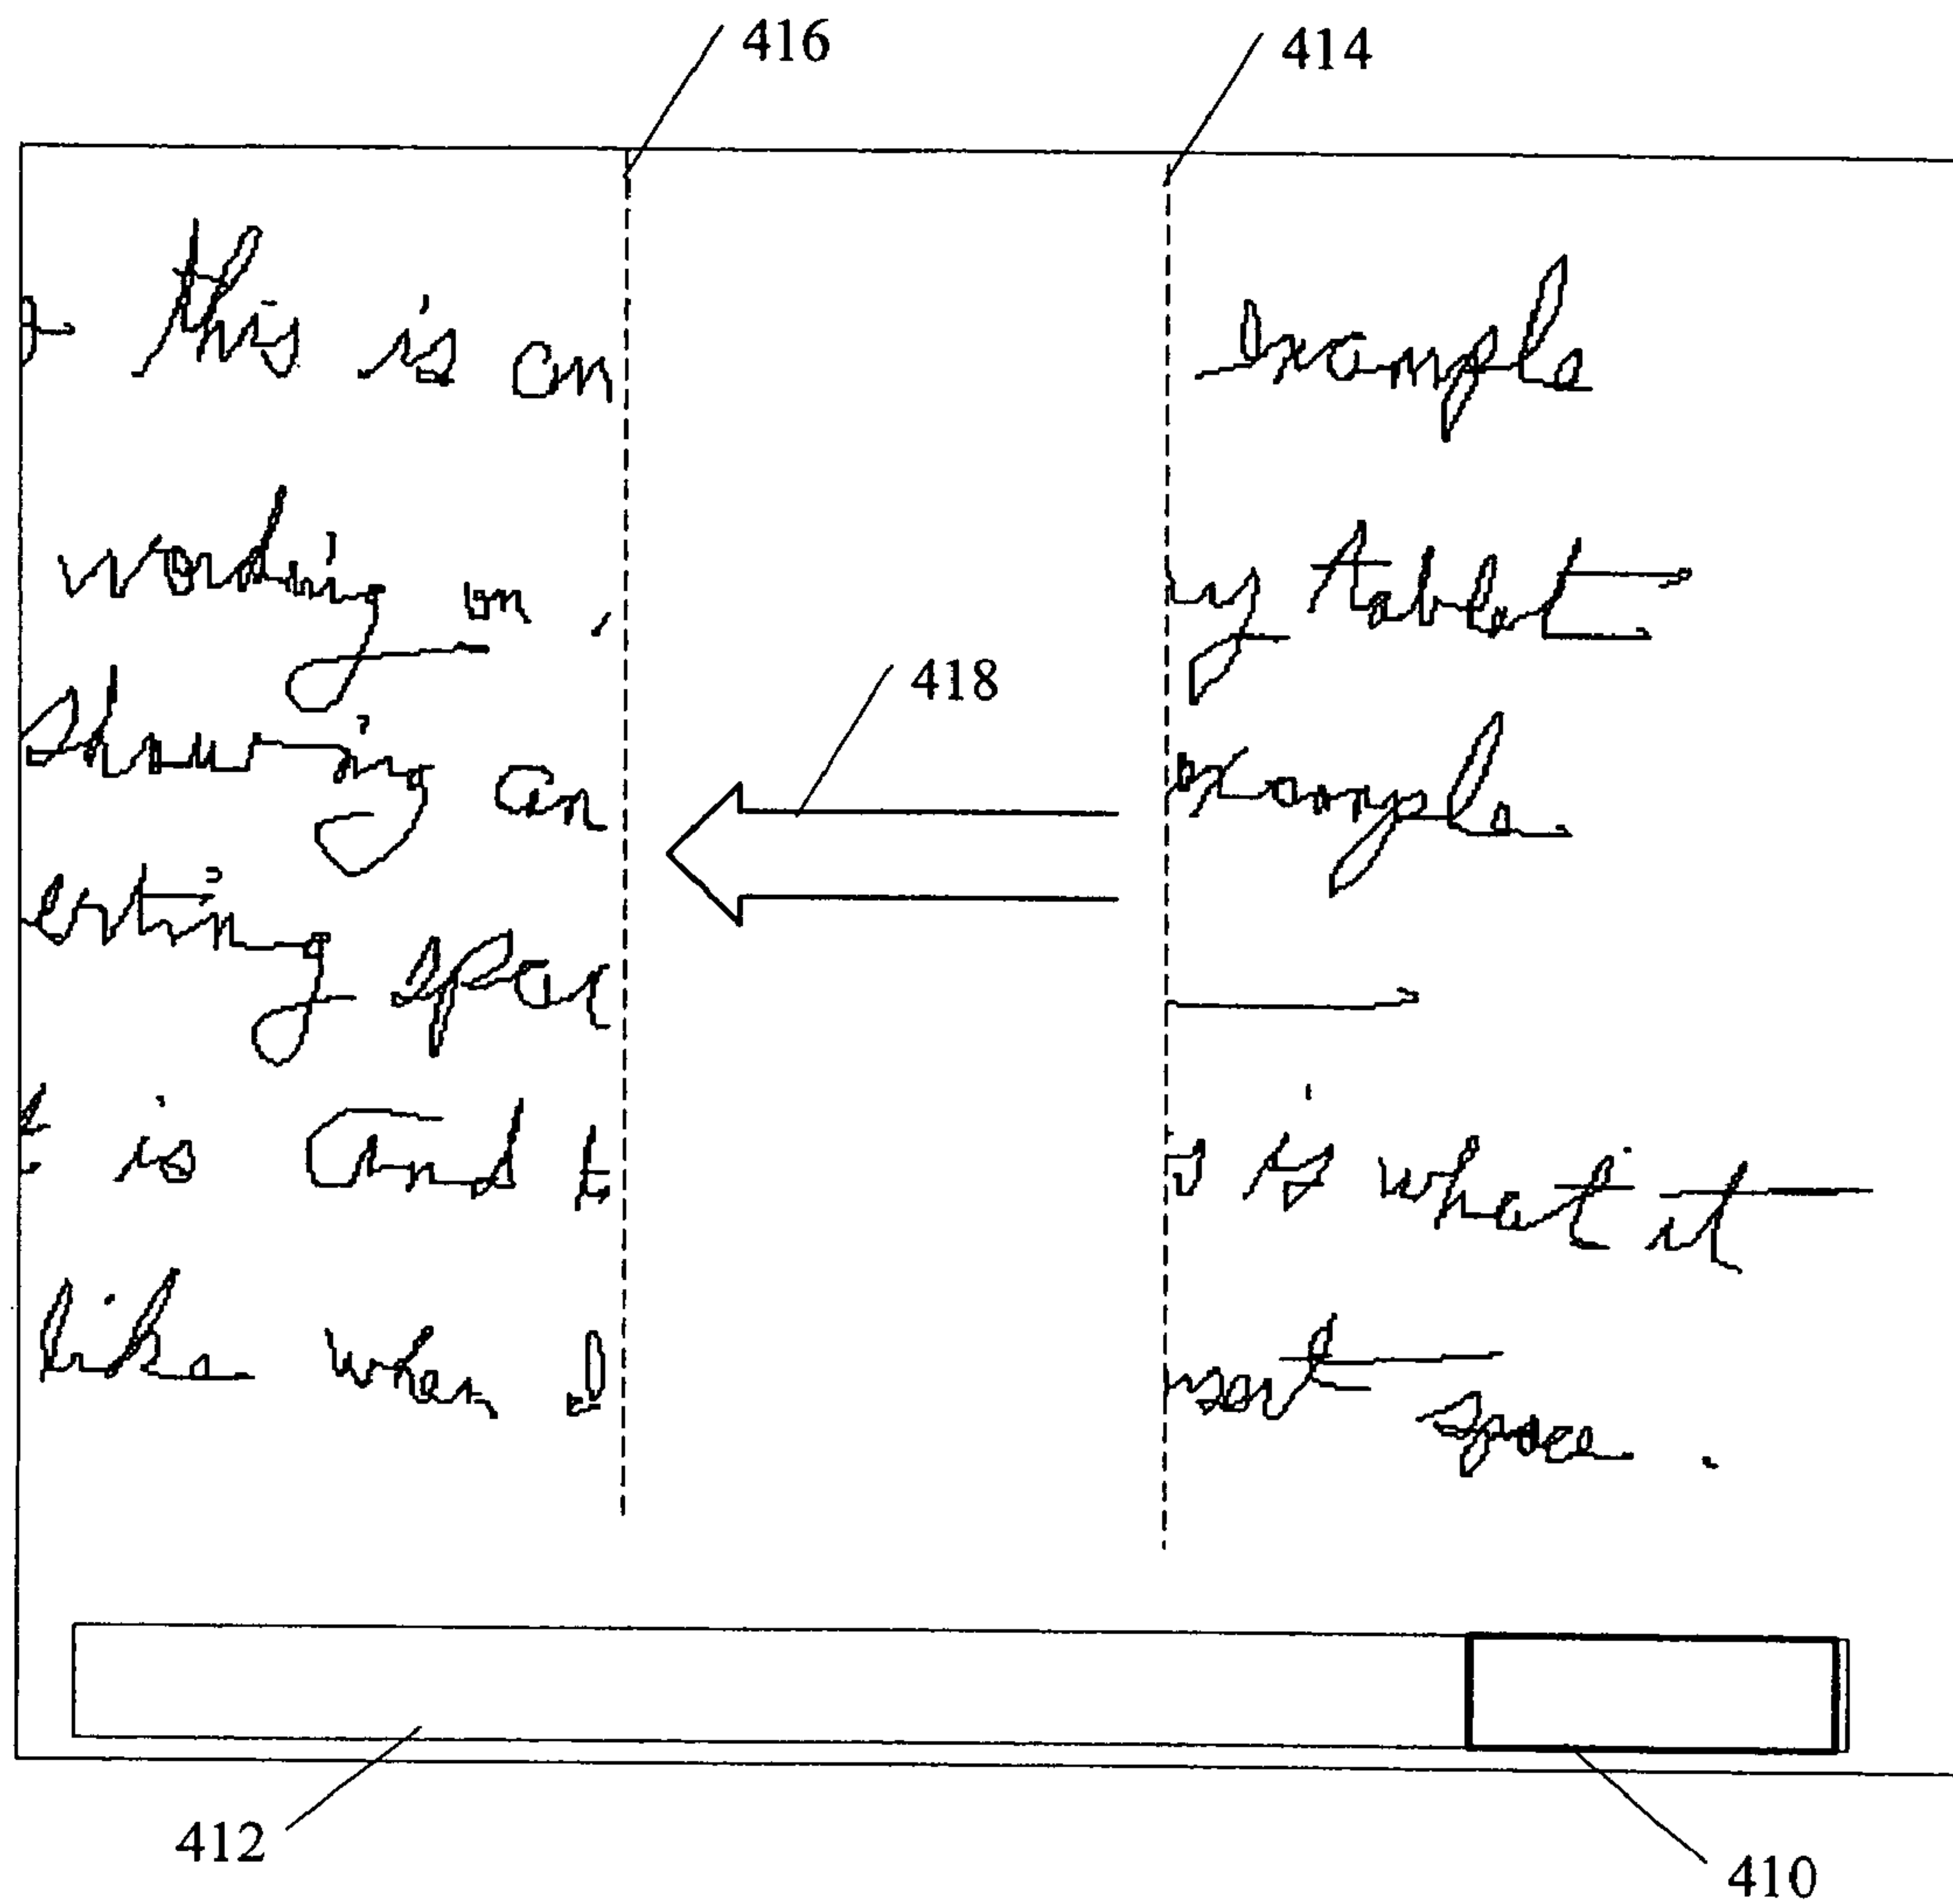 416 414
this is an example
working on my tablet
418
showing an example
erting spac
t is and t s is what it
like when I nsert space.
412
410